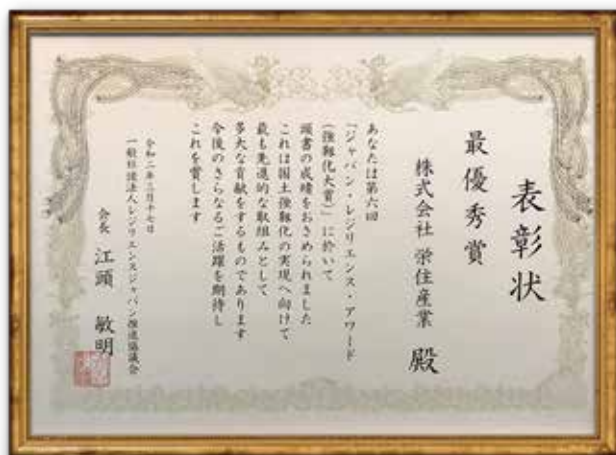 表彰状
最優秀賞
株式会社 栄住産業 殿
あなたは第六回
「ジャパン・レジリエンス・アワード
（強靱化大賞）」に於いて
頭書の成績をおさめられました
これは国土強靱化の実現へ向けて
最も先進的な取組みとして
多大な貢献をするものであります
今後のさらなるご活躍を期待し
これを賞します
令和二年三月十七日
一般社団法人レジリエンスジャパン推進協議会
会長 江頭 敏明